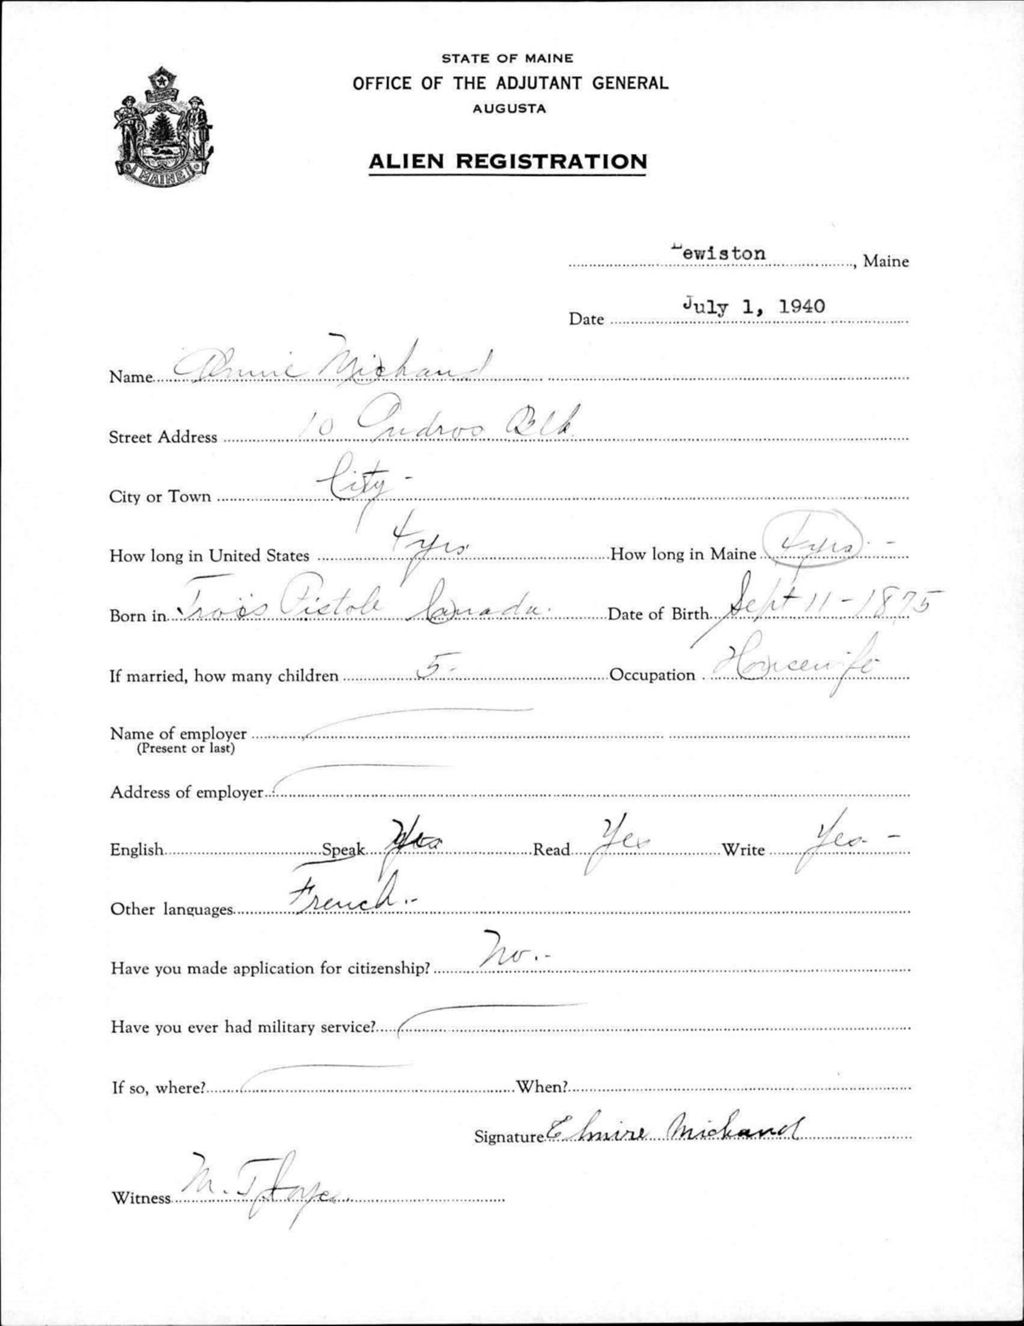 STATE OF MAINE
OFFICE OF THE ADJUTANT GENERAL
AUGUSTA
MAINE
ALIEN REGISTRATION
Lewiston, Maine
Date July 1, 1940
Name Michaud
Street Address 10 Andros Blk
City or Town City -
How long in United States 4 yrs. How long in Maine 4 yrs. -
Born in Trois Pistole Canada. Date of Birth Sept 11 - 1875
If married, how many children 5 - Occupation Housewife
Name of employer
(Present or last)
Address of employer
English Speak Yes Read Yes Write Yes -
Other languages French. -
Have you made application for citizenship? No. -
Have you ever had military service?
If so, where? When?
Signature Elmire Michaud
Witness M. T.